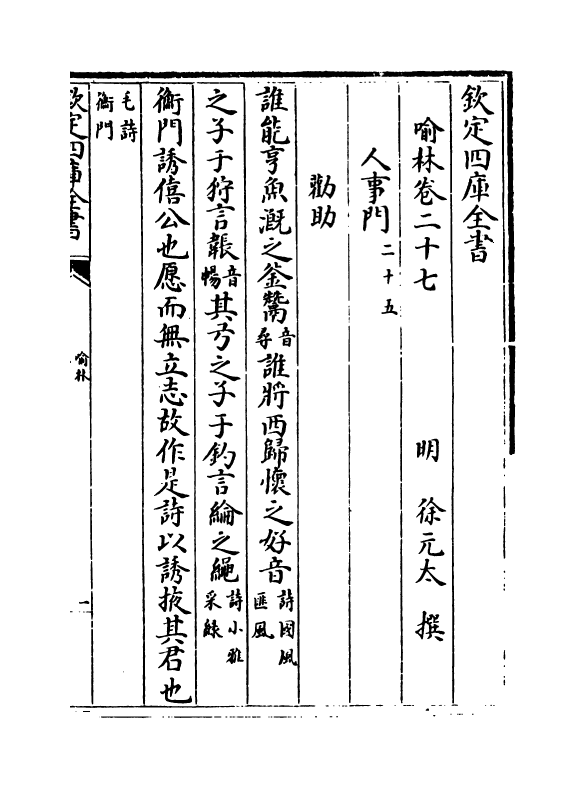 欽定四庫全書
喻林卷二十七
明 徐元太 撰
人事門二十五
勸助
誰能亨魚溉之釜鬵音尋誰將西歸懷之好音詩國風匪風
之子于狩言韔音暢其弓之子于釣言綸之繩詩小雅采綠
衡門誘僖公也愿而無立志故作是詩以誘掖其君也
毛詩衡門
欽定四庫全書
喻林
一